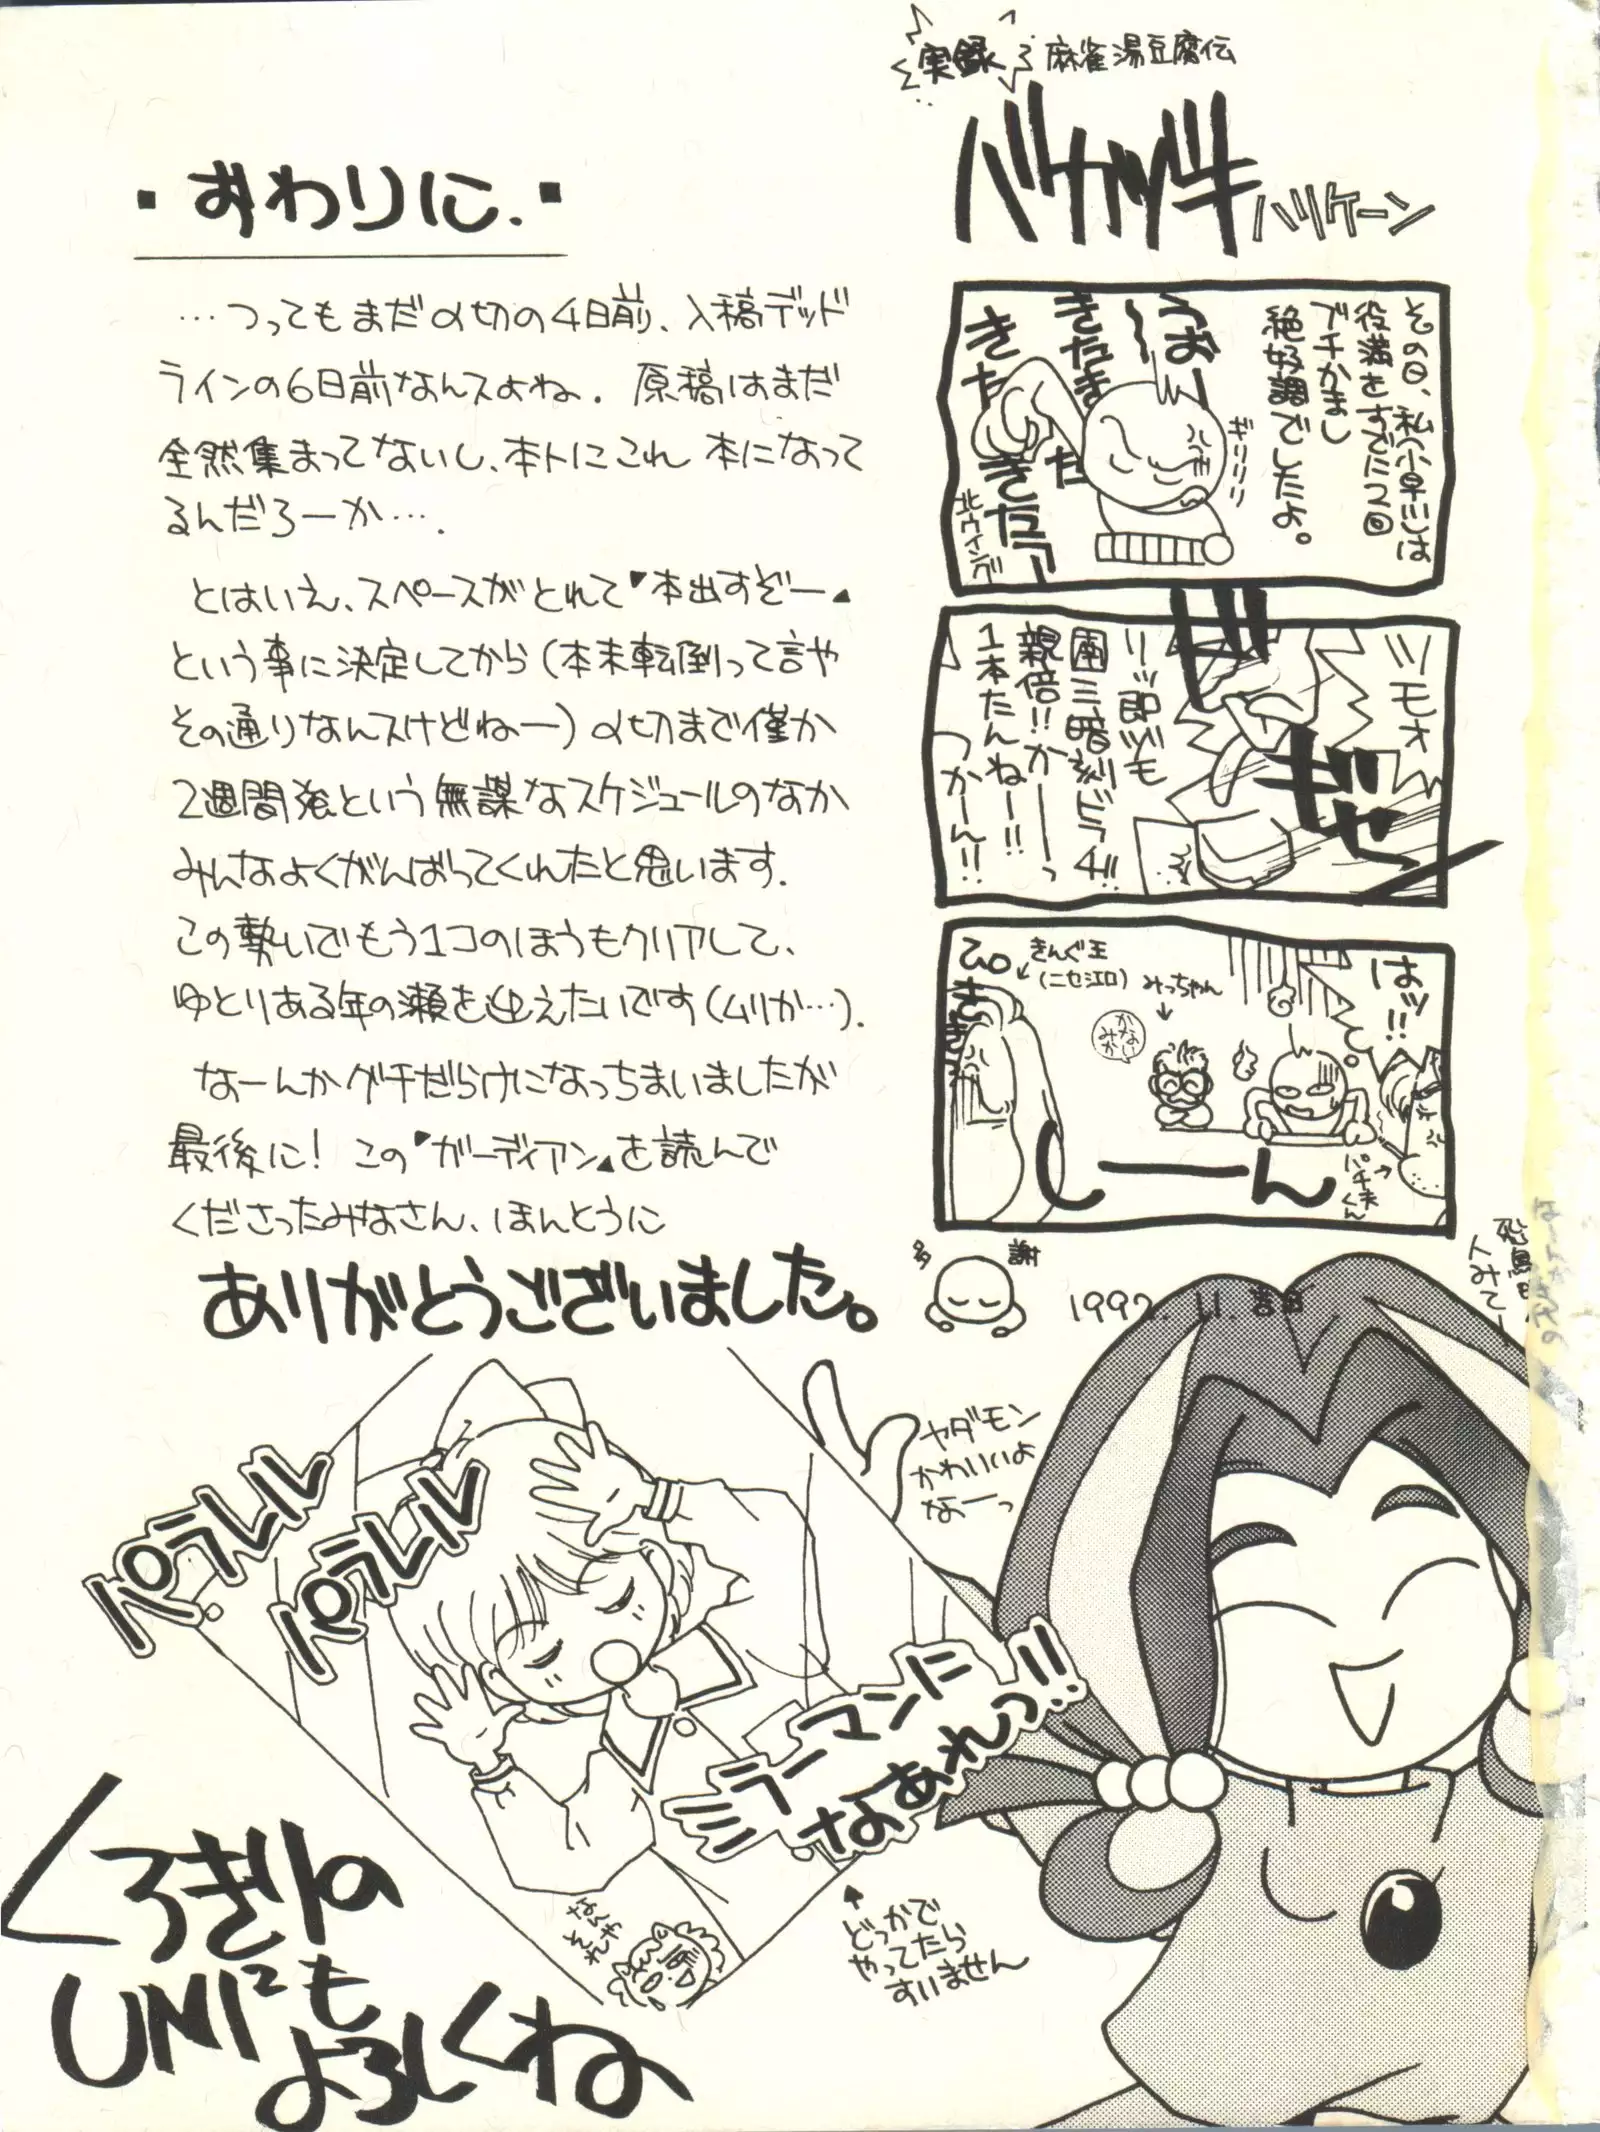 実録 麻雀湯豆腐伝
バカヅキ ハリケーン
その日、私(小早川)は
役満をすでに2回
ブチかまし
絶好調でしたよ。
うおー
きたき
きた
きた
ギリリリリ
北ウィング
ツモォ
ドギャーン
リーッ即ヅモ
南三暗刻ドラ4!!
親倍!!かーーっ
1本たんねー!!
つかーん!!
はッ!!
きんぐ王
(ニセ江口)
みっちゃん
かない
みか
ぴきき
パチ夫くん
しーーん
・おわりに.・
…つってもまだ〆切の4日前、入稿デッド
ラインの6日前なんスよね. 原稿はまだ
全然集まってないし、本トにこれ 本になって
るんだろーか….
とはいえ、スペースがとれて"本出すぞー"
という事に決定してから(本末転倒って言や
その通りなんスけどねー)〆切まで僅か
2週間強という無謀なスケジュールのなか
みんなよくがんばってくれたと思います.
この勢いでもう1コのほうもクリアして、
ゆとりある年の瀬を迎えたいです(ムリか…).
なーんかグチだらけになっちまいましたが
最後に! この"ガーディアン"を読んで
くださったみなさん、ほんとうに
ありがとうございました。
多謝
1992. 11. 吉日
ヤダモン
かわいいよ
なーっ
パラレル
パラレル
ラーマンに
なあれっ!!
どっかで
やってたら
すいません
くろきりの
UMI²も
よろしくね